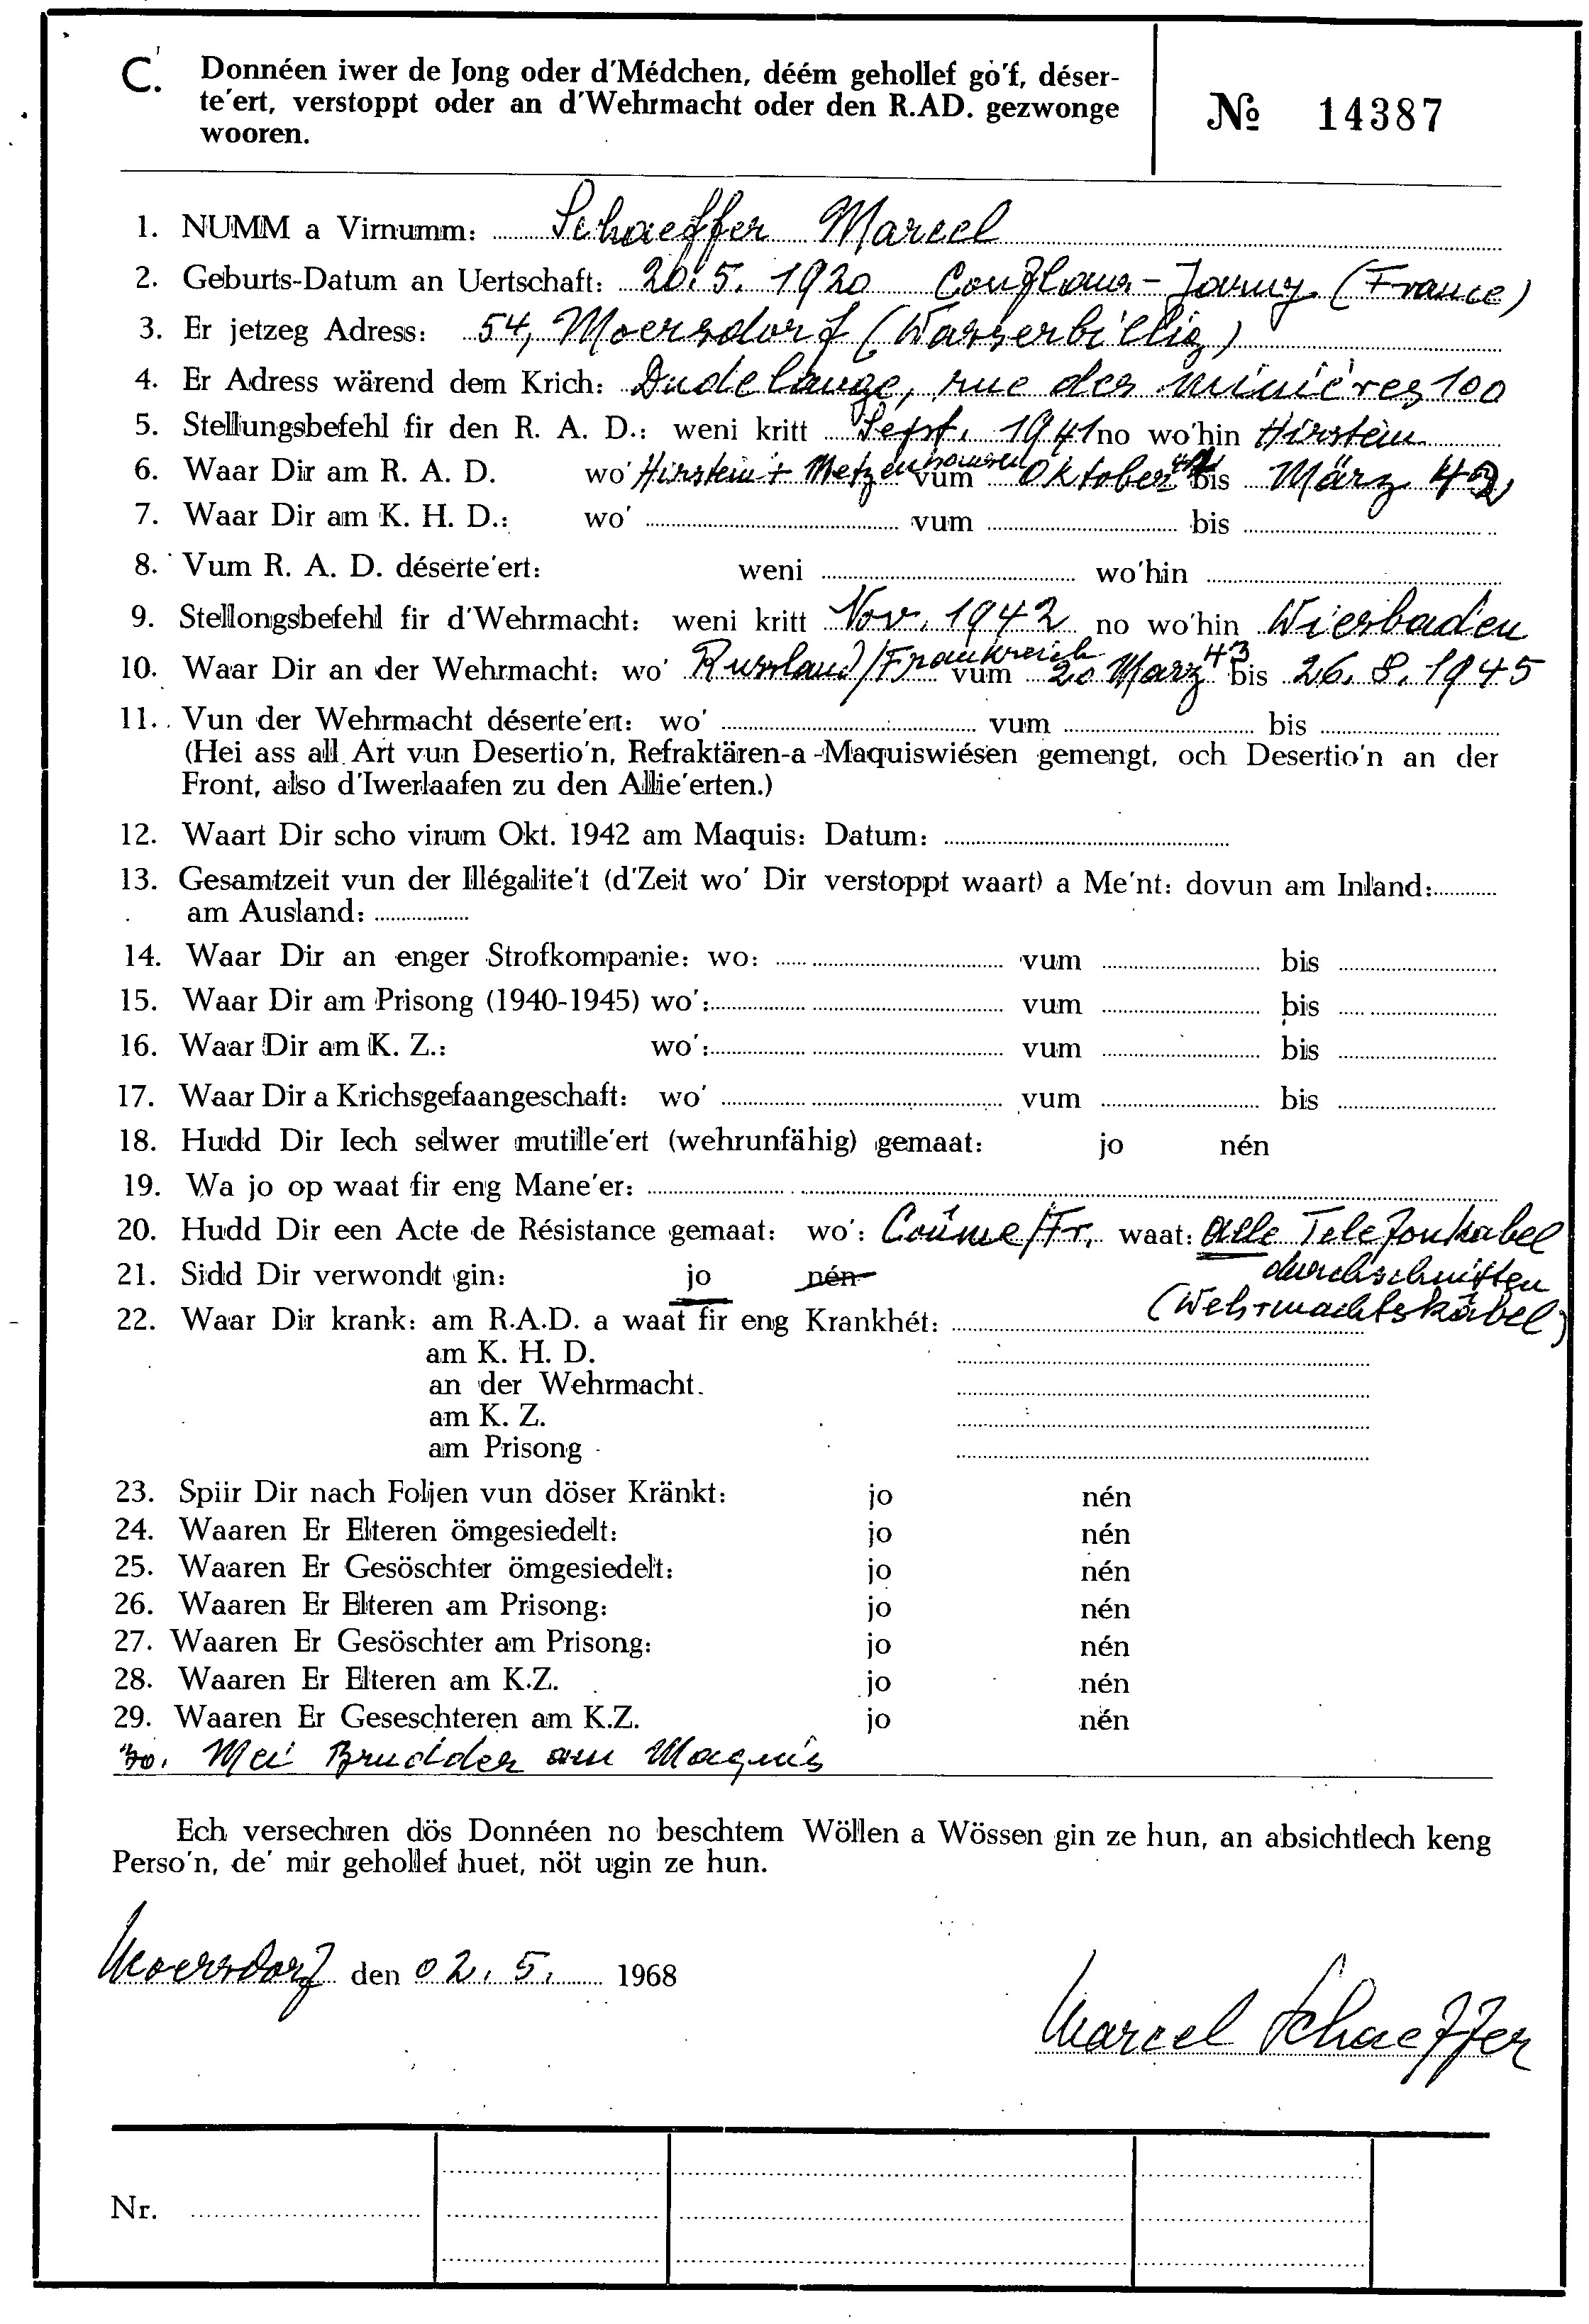 C. Donnéen iwer de Jong oder d'Médchen, déém gehollef go'f, déser-
te'ert, verstoppt oder an d'Wehrmacht oder den R.AD. gezwonge
wooren.
№ 14387
1. NUMM a Virnumm: Schaeffer Marcel
2. Geburts-Datum an Uertschaft: 20.5.1920 Conflans-Jarny (France)
3. Er jetzeg Adress: 54, Moersdorf (Wasserbillig)
4. Er Adress wärend dem Krich: Dudelange, rue des minières 100
5. Stellungsbefehl fir den R. A. D.: weni kritt Sept. 1941 no wo'hin Hirstein
6. Waar Dir am R. A. D. wo' Hirstein + Metzenhausen vum Oktober bis März 42
7. Waar Dir am K. H. D.: wo' vum bis
8. Vum R. A. D. déserte'ert: weni wo'hin
9. Stellongsbefehl fir d'Wehrmacht: weni kritt Nov. 1942 no wo'hin Wiesbaden
10. Waar Dir an der Wehrmacht: wo' Russland/Frankreich vum 20 März 43 bis 26.8.1945
11. Vun der Wehrmacht déserte'ert: wo' vum bis
(Hei ass all Art vun Desertio'n, Refraktären-a-Maquiswiésen gemengt, och Desertio'n an der
Front, also d'Iwerlaafen zu den Allie'erten.)
12. Waart Dir scho virum Okt. 1942 am Maquis: Datum:
13. Gesamtzeit vun der Illégalite't (d'Zeit wo' Dir verstoppt waart) a Me'nt: dovun am Inland:
am Ausland:
14. Waar Dir an enger Strofkompanie: wo: vum bis
15. Waar Dir am Prisong (1940-1945) wo': vum bis
16. Waar Dir am K. Z.: wo': vum bis
17. Waar Dir a Krichsgefaangeschaft: wo' vum bis
18. Hudd Dir Iech selwer mutille'ert (wehrunfähig) gemaat: jo nén
19. Wa jo op waat fir eng Mane'er:
20. Hudd Dir een Acte de Résistance gemaat: wo': Coûme/Fr. waat: alle Telefonkabel
durchschnitten
21. Sidd Dir verwondt gin: jo nén
(Wehrmachtskabel)
22. Waar Dir krank: am R.A.D. a waat fir eng Krankhét:
am K. H. D.
an der Wehrmacht.
am K. Z.
am Prisong
23. Spiir Dir nach Foljen vun döser Kränkt: jo nén
24. Waaren Er Elteren ömgesiedelt: jo nén
25. Waaren Er Gesöschter ömgesiedelt: jo nén
26. Waaren Er Elteren am Prisong: jo nén
27. Waaren Er Gesöschter am Prisong: jo nén
28. Waaren Er Elteren am K.Z. jo nén
29. Waaren Er Geseschteren am K.Z. jo nén
30. Mei Brudder am Maquis
Ech versechren dös Donnéen no beschtem Wöllen a Wössen gin ze hun, an absichtlech keng
Perso'n, de' mir gehollef huet, nöt ugin ze hun.
Moersdorf den 02.5. 1968
Marcel Schaeffer
Nr.